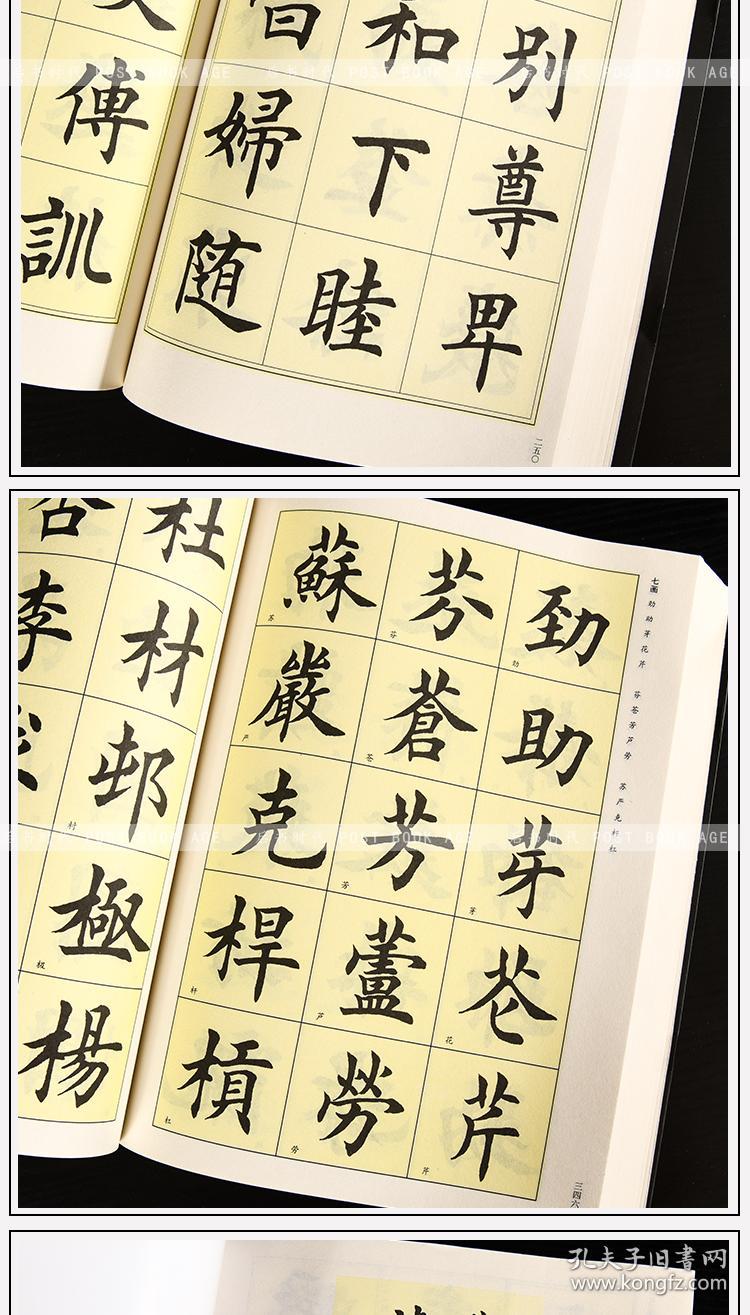 和
别
傅
婦
下
尊
訓
随
睦
卑
二五〇
后书时代 POST BOOK AGE
七画 劲 助 芽 花 芹 芬 苍 芳 芦 劳 苏 严 克 杆 杠
杜
蘇 苏
芬 芬
劲 劲
李
材
巖 严
蒼 苍
助
邨 村
克
芳 芳
芽 芽
極 极
桿 杆
蘆 芦
花 花
楊
槓 杠
勞 劳
芹 芹
三四六
POST BOOK AGE
孔夫子旧書网
www.kongfz.com